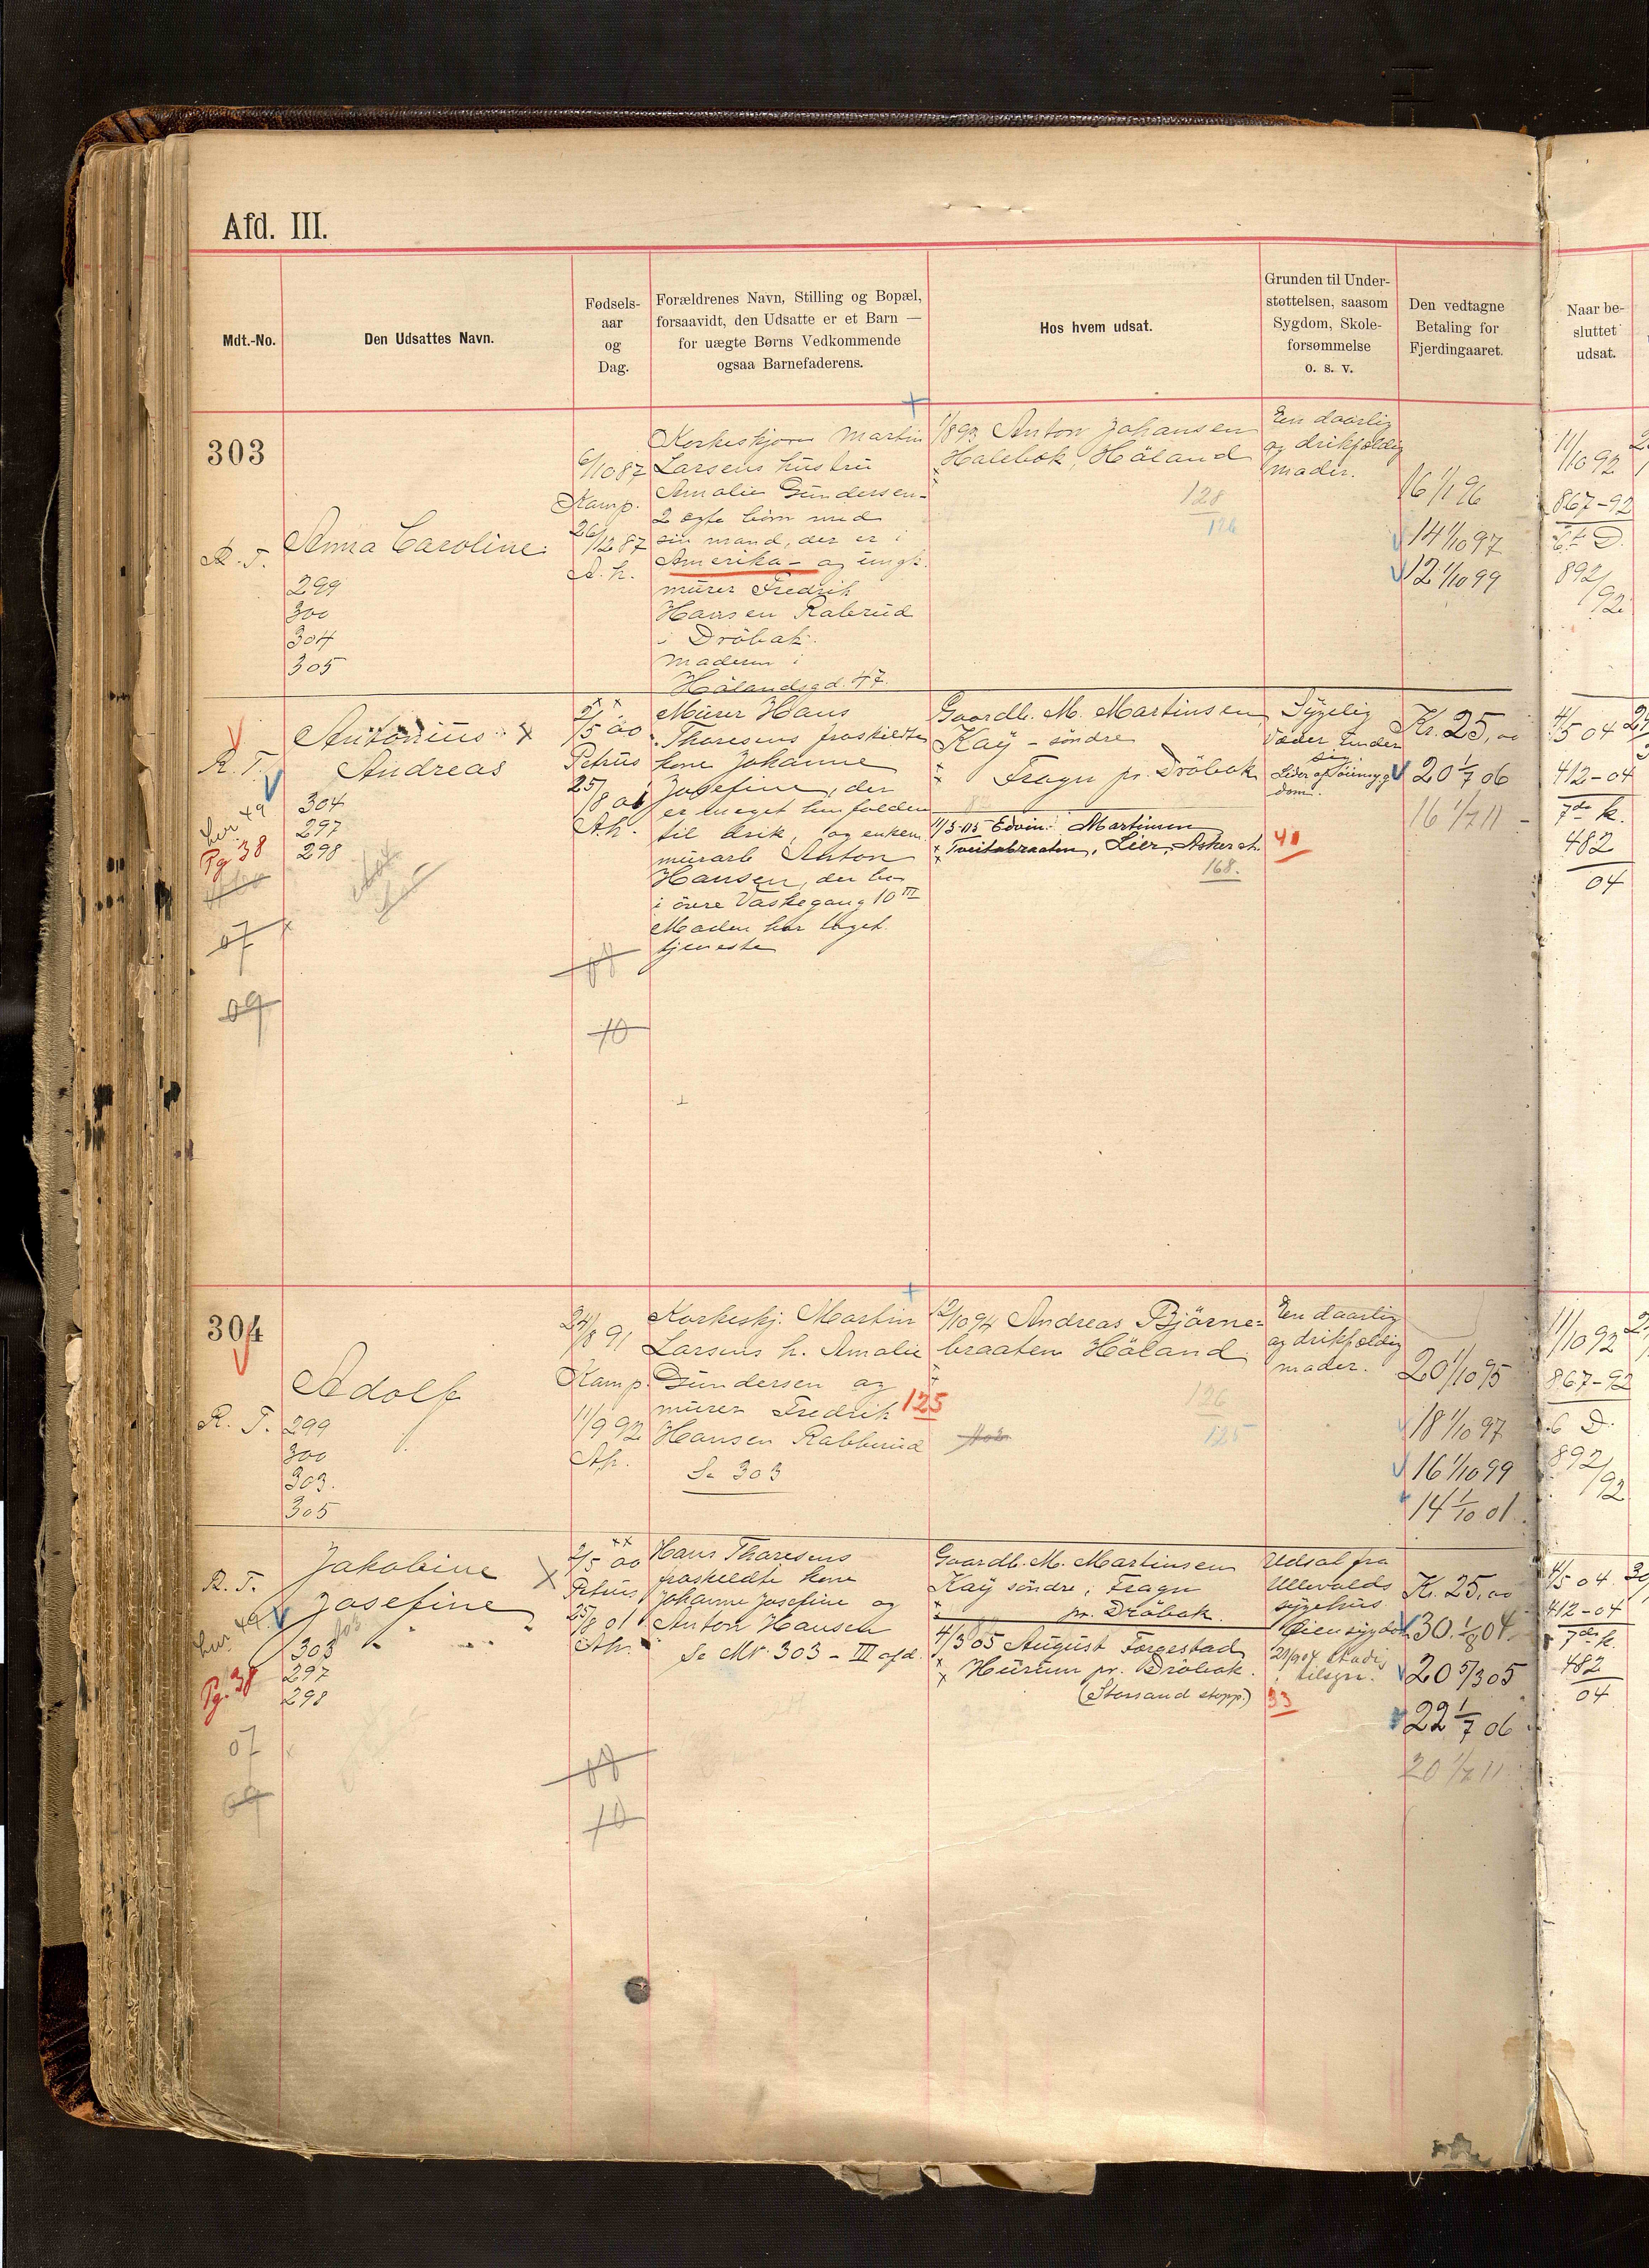 Afd. III.
Mdt.-No.
Den Udsattes Navn.
Fødsels-
aar
og
Dag.
Forældrenes Navn, Stilling og Bopæl,
forsaavidt, den Udsatte er et Barn —
for uægte Børns Vedkommende
ogsaa Barnefaderens.
Hos hvem udsat.
Grunden til Under-
støttelsen, saasom
Sygdom, Skole-
forsømmelse
o. s. v.
Den vedtagne
Betaling for
Fjerdingaaret.
Naar be-
sluttet
udsat.
303
R. T.
Anna Caroline
299
300
304
305
6/10 87
Kamp.
26/12 87
A. h.
Korkeskjærer Martin
Larsens hustru
Amalie Gundersen -
2 ægte børn med
sin mand, der er i
Amerika - og ungk.
murer Fredrik
Hansen Raberud
i Dröbak.
Maderen i
Hölandsgd. 47.
1/8 92 Anton Johansen
Halebøk, Höland
128
126
En daarlig
og drikfældig
moder.
16 1/1 96
14 1/10 97
12 1/10 99
11/10 92
867-92
6te D.
892/92
R. T.
Antonius x
Andreas
304
297
298
Lur. 49
Pg. 38
07
09
2/5 00
Petrus
25/8 00
A.h.
08
10
Murer Hans
Thoresens fraskildte
kone Johanne
Josefine, der
er meget henfalden
til drik, og enkem.
murarb. Anton
Hansen, der bor
i övre Vaskegang 10 III
Moderen har taget
tjeneste
Gaardb. M. Martinsen
Kaÿ - söndre
Frogn pr. Dröbak
11/3 05 Edvin Martinsen
Tveitabraaten, Lier, Asker st.
168.
Sygelig
Lider af öiensyg
dom.
41
Kr. 25,00
20 1/7 06
16 1/7 11
4/5 04
412-04
7de k.
482
04
304
R. T.
Adolf
299
300
303.
305
24/8 91
Kamp.
11/9 92
Ah.
Korkeskj. Martin
Larsens h. Amalie
Gundersen og
murer Fredrik
Hansen Rabberud
Se 303
125
12/10 94 Andreas Björne-
braaten Höland
126
125
En daarlig
og drikfældig
moder.
20 1/10 95
18 1/10 97
16 1/10 99
14 1/10 01
11/10 92
867-92
6 D.
892/92
R. T.
Jakobine x
Josefine
303
297
298
Lur. 49.
Pg. 38
07
09
2/5 00
Petrus
25/8 01
Ah.
08
10
Hans Thoresens
fraskildte kone
Johanne Josefine og
Anton Hansen
Se Mt. 303 - III afd.
Gaardb. M. Martinsen
Kaÿ söndre, Frogn
pr. Dröbak.
4/3 05 August Torgestad
Hurum pr. Dröbak.
(Storsand stopp.)
Udsat fra
Ullevolds
sygehus
Öiensygdom
21/9 04 stadig
tilsyn.
33
K. 25,00
30 1/8 04
20 5/3 05
22 1/7 06
20 1/7 11
4/5 04
412-04
7de k.
482
04